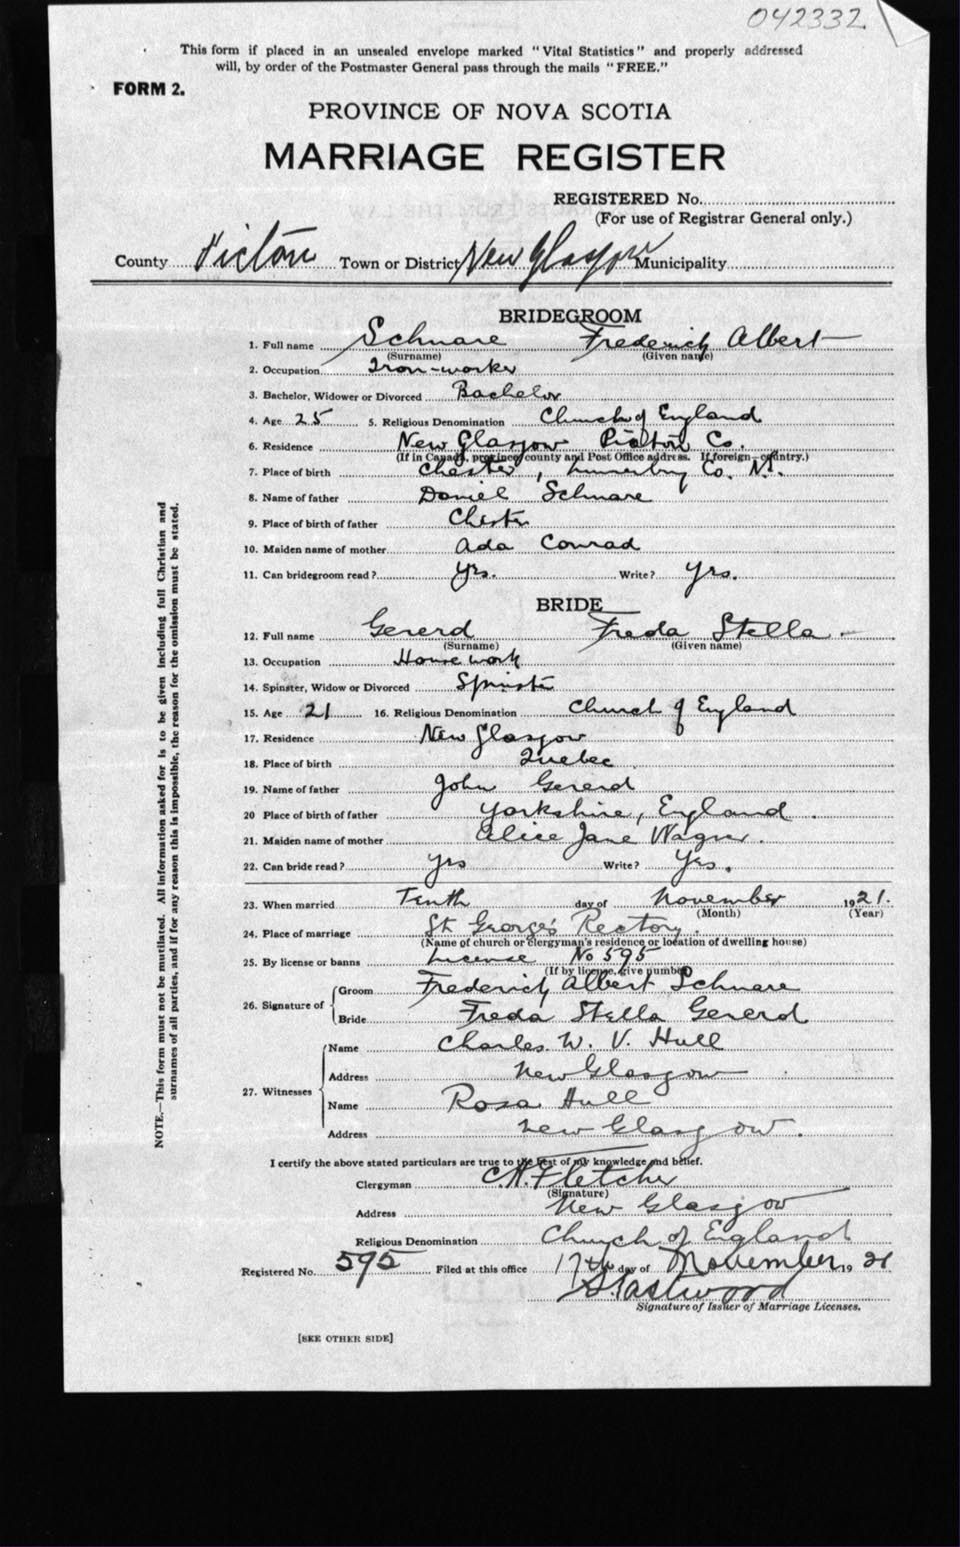 042332
This form if placed in an unsealed envelope marked "Vital Statistics" and properly addressed
will, by order of the Postmaster General pass through the mails "FREE."
FORM 2.
PROVINCE OF NOVA SCOTIA
MARRIAGE REGISTER
REGISTERED No.
(For use of Registrar General only.)
County Pictou Town or District New Glasgow Municipality
BRIDEGROOM
1. Full name Schnare Frederick Albert
(Surname) (Given name)
2. Occupation Iron-worker
3. Bachelor, Widower or Divorced Bachelor
4. Age 25 5. Religious Denomination Church of England
6. Residence New Glasgow Pictou Co.
(If in Canada, province, county and Post Office address. If foreign—country.)
7. Place of birth Chester, Lunenburg Co. N.S.
8. Name of father Daniel Schnare
9. Place of birth of father Chester
10. Maiden name of mother Ada Conrad
11. Can bridegroom read? Yrs. Write? Yrs.
BRIDE
12. Full name Gererd Freda Stella
(Surname) (Given name)
13. Occupation House work
14. Spinster, Widow or Divorced Spinster
15. Age 21 16. Religious Denomination Church of England
17. Residence New Glasgow
18. Place of birth Quebec
19. Name of father John Gererd
20 Place of birth of father Yorkshire, England
21. Maiden name of mother Alice Jane Wagner.
22. Can bride read? Yrs Write? Yrs.
23. When married Tenth day of November 1921.
(Month) (Year)
24. Place of marriage St George's Rectory.
(Name of church or clergyman's residence or location of dwelling house)
25. By license or banns License No 595
(If by license, give number)
26. Signature of Groom Frederick Albert Schnare
Bride Freda Stella Gererd
27. Witnesses Name Charles. W. V. Hull
Address New Glasgow
Name Rosa Hull
Address New Glasgow.
I certify the above stated particulars are true to the best of my knowledge and belief.
Clergyman Fletcher
(Signature)
Address New Glasgow
Religious Denomination Church of England
Registered No. 595 Filed at this office 17th day of November 1921
Signature of Issuer of Marriage Licenses.
[SEE OTHER SIDE]
NOTE.—This form must not be mutilated. All information asked for is to be given including full Christian and
surnames of all parties, and if for any reason this is impossible, the reason for the omission must be stated.